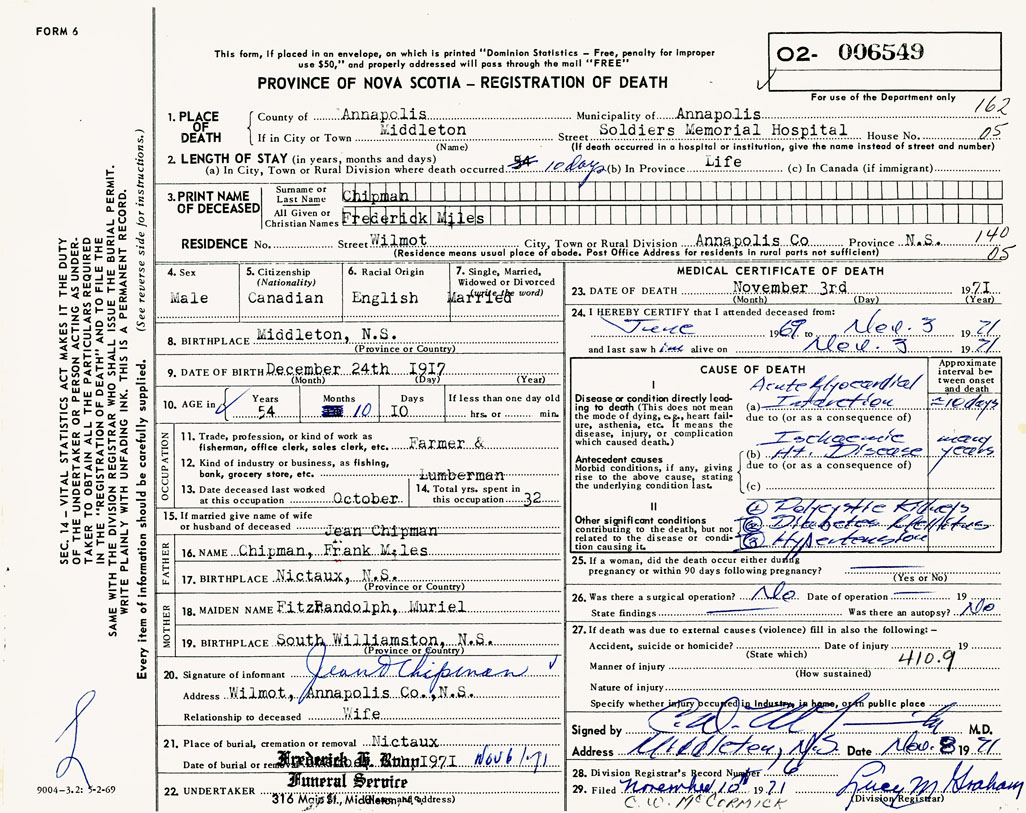 FORM 6
This form, if placed in an envelope, on which is printed "Dominion Statistics — Free, penalty for improper
use $50," and properly addressed will pass through the mail "FREE"
O2- 006549
PROVINCE OF NOVA SCOTIA — REGISTRATION OF DEATH
For use of the Department only
162
1. PLACE OF DEATH
County of Annapolis Municipality of Annapolis
If in City or Town Middleton Street Soldiers Memorial Hospital House No. 05
(Name) (If death occurred in a hospital or institution, give the name instead of street and number)
2. LENGTH OF STAY (in years, months and days)
(a) In City, Town or Rural Division where death occurred 54 10 days (b) In Province Life (c) In Canada (if immigrant)
3. PRINT NAME OF DECEASED
Surname or Last Name Chipman
All Given or Christian Names Frederick Miles
RESIDENCE No. Street Wilmot City, Town or Rural Division Annapolis Co Province N.S. 140
(Residence means usual place of abode. Post Office Address for residents in rural parts not sufficient) 05
4. Sex
Male
5. Citizenship
(Nationality)
Canadian
6. Racial Origin
English
7. Single, Married,
Widowed or Divorced
(write the word)
Married
8. BIRTHPLACE Middleton, N.S.
(Province or Country)
9. DATE OF BIRTH December 24th 1917
(Month) (Day) (Year)
10. AGE in Years Months Days If less than one day old
54 10 10 hrs. or min.
OCCUPATION
11. Trade, profession, or kind of work as
fisherman, office clerk, sales clerk, etc. Farmer &
12. Kind of industry or business, as fishing,
bank, grocery store, etc. Lumberman
13. Date deceased last worked
at this occupation October
14. Total yrs. spent in
this occupation 32
15. If married give name of wife
or husband of deceased Jean Chipman
FATHER
16. NAME Chipman, Frank Miles
17. BIRTHPLACE Nictaux, N.S.
(Province or Country)
MOTHER
18. MAIDEN NAME FitzRandolph, Muriel
19. BIRTHPLACE South Williamston, N.S.
(Province or Country)
20. Signature of informant Jean D Chipman
Address Wilmot, Annapolis Co., N.S.
Relationship to deceased Wife
21. Place of burial, cremation or removal Nictaux
Date of burial or removal 1971 Nov 6/71
22. UNDERTAKER
Frederick H. Roop
Funeral Service
316 Main St, Middleton
(Name and address)
MEDICAL CERTIFICATE OF DEATH
23. DATE OF DEATH November 3rd 1971
(Month) (Day) (Year)
24. I HEREBY CERTIFY that I attended deceased from:
June 1969 to Nov. 3 1971
and last saw him alive on Nov. 3 1971
CAUSE OF DEATH
Approximate
interval be-
tween onset
and death
I
Disease or condition directly lead-
ing to death (This does not mean
the mode of dying, e.g., heart fail-
ure, asthenia, etc. It means the
disease, injury, or complication
which caused death.)
Acute Myocardial
(a) Infarction ± 10 days
due to (or as a consequence of)
Antecedent causes
Morbid conditions, if any, giving
rise to the above cause, stating
the underlying condition last.
Ischaemic many
(b) Ht. Disease years
due to (or as a consequence of)
(c)
II
Other significant conditions
contributing to the death, but not
related to the disease or condi-
tion causing it.
(1) Polycystic Kidneys
(2) Diabetes Mellitus
(3) Hypertension
25. If a woman, did the death occur either during
pregnancy or within 90 days following pregnancy?
(Yes or No)
26. Was there a surgical operation? No Date of operation 19
State findings Was there an autopsy? No
27. If death was due to external causes (violence) fill in also the following: —
Accident, suicide or homicide? Date of injury 19
(State which) 410.9
Manner of injury
(How sustained)
Nature of injury
Specify whether injury occurred in industry, in home, or in public place
Signed by M.D.
Address Middleton, N.S. Date Nov. 8 1971
28. Division Registrar's Record Number 6
29. Filed November 10th 1971 Lucy M Graham
C. W. McCORMICK (Division Registrar)
SEC. 14 — VITAL STATISTICS ACT MAKES IT THE DUTY
OF THE UNDERTAKER OR PERSON ACTING AS UNDER-
TAKER TO OBTAIN ALL THE PARTICULARS REQUIRED
IN THE "REGISTRATION OF DEATH" AND TO FILE THE
SAME WITH THE DIVISION REGISTRAR WHO SHALL ISSUE THE BURIAL PERMIT.
WRITE PLAINLY WITH UNFADING INK. THIS IS A PERMANENT RECORD.
Every item of information should be carefully supplied. (See reverse side for instructions.)
9004-3.2: 5-2-69